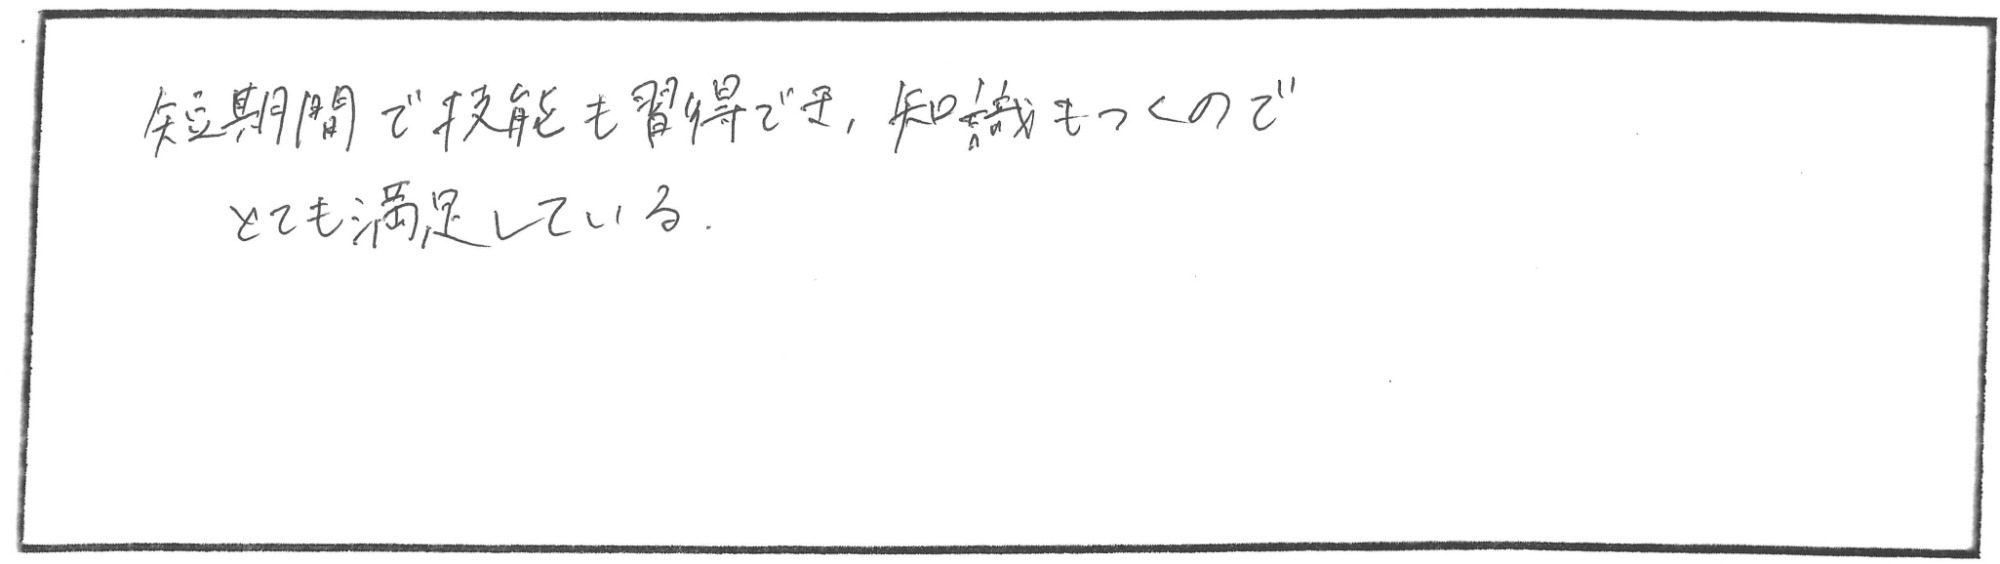 短期間で技能も習得でき,知識もつくので
とても満足している.